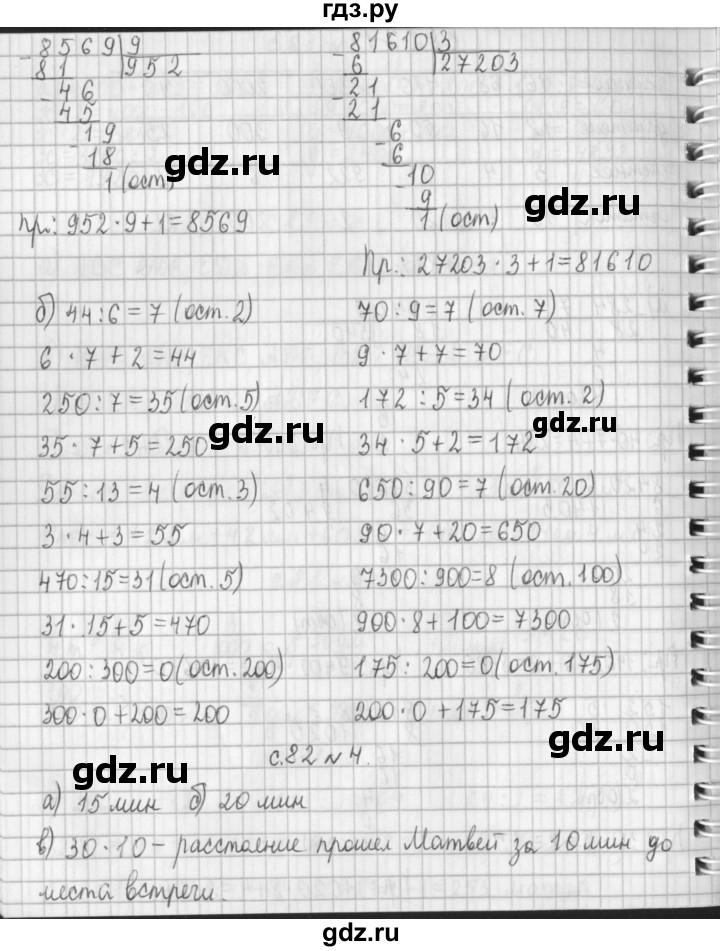 гдз.ру
8569 | 9
81 | 952
- 46
45
- 19
18
1 (ост)
Пр.: 952 · 9 + 1 = 8569
81610 | 3
6 | 27203
- 21
21
- 6
6
- 10
9
1 (ост)
Пр.: 27203 · 3 + 1 = 81610
gdz.ru
gdz.ru
б) 44 : 6 = 7 (ост. 2)
6 · 7 + 2 = 44
250 : 7 = 35 (ост. 5)
35 · 7 + 5 = 250
55 : 13 = 4 (ост. 3)
3 · 4 + 3 = 55
470 : 15 = 31 (ост. 5)
31 · 15 + 5 = 470
200 : 300 = 0 (ост. 200)
300 · 0 + 200 = 200
70 : 9 = 7 (ост. 7)
9 · 7 + 7 = 70
172 : 5 = 34 (ост. 2)
34 · 5 + 2 = 172
650 : 90 = 7 (ост. 20)
90 · 7 + 20 = 650
7300 : 900 = 8 (ост. 100)
900 · 8 + 100 = 7300
175 : 200 = 0 (ост. 175)
200 · 0 + 175 = 175
gdz.ru
gdz.ru
gdz.ru
gdz.ru
с. 82 № 4.
а) 15 мин б) 20 мин
в) 30 · 10 – расстояние прошел Матвей за 10 мин до
места встречи.
gdz.ru